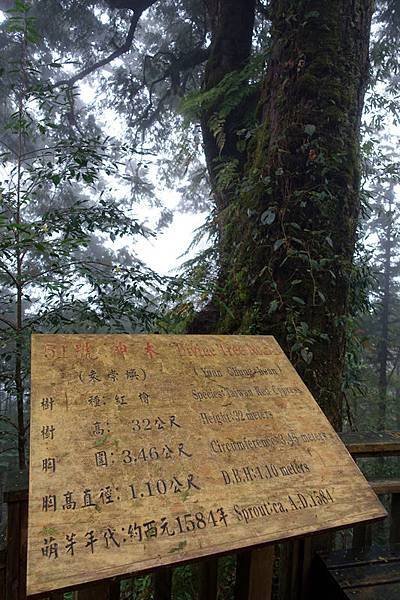 51號 神木 Divine Tree No.51
(袁崇煥) (Yuan Chung-hwan)
樹 種: 紅檜 Species: Taiwan Red Cypress
樹 高: 32公尺 Height: 32 meters
胸 圍: 3.46公尺 Circumference: 3.45 meters
胸高直徑: 1.10公尺 D.B.H: 1.10 meters
萌芽年代: 約西元1584年 Sprout: ca. A.D. 1584